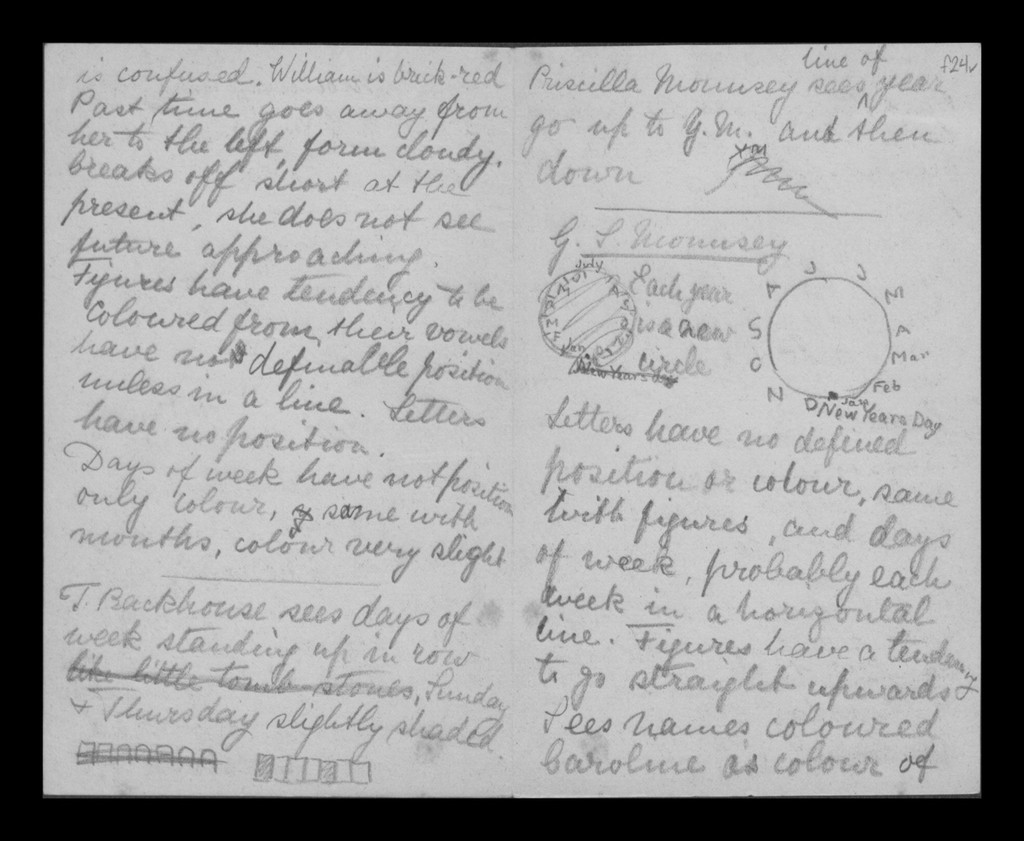 is confused. William is brick-red
Past time goes away from
her to the left, form cloudy,
breaks off short at the
present, she does not see
future approaching.
Figures have tendency to be
coloured from their vowels
have no definable position
unless in a line. Letters
have no position.
Days of week have not position
only colour, & same with
months, colour very slight
T. Backhouse sees days of
week standing up in row
like little tomb-stones, Sunday
& Thursday slightly shaded
f24v
line of
Priscilla Mounsey sees year
go up to Y.M. and then
down
G. S. Mounsey
July
Jan
New Years day
Each year
is a new
circle
J J
A M
S A
O Mar
N Feb
D Jan
New Years Day
Letters have no defined
position or colour, same
with figures, and days
of week, probably each
week in a horizontal
line. Figures have a tendency
to go straight upwards &
Sees names coloured
Caroline as colour of